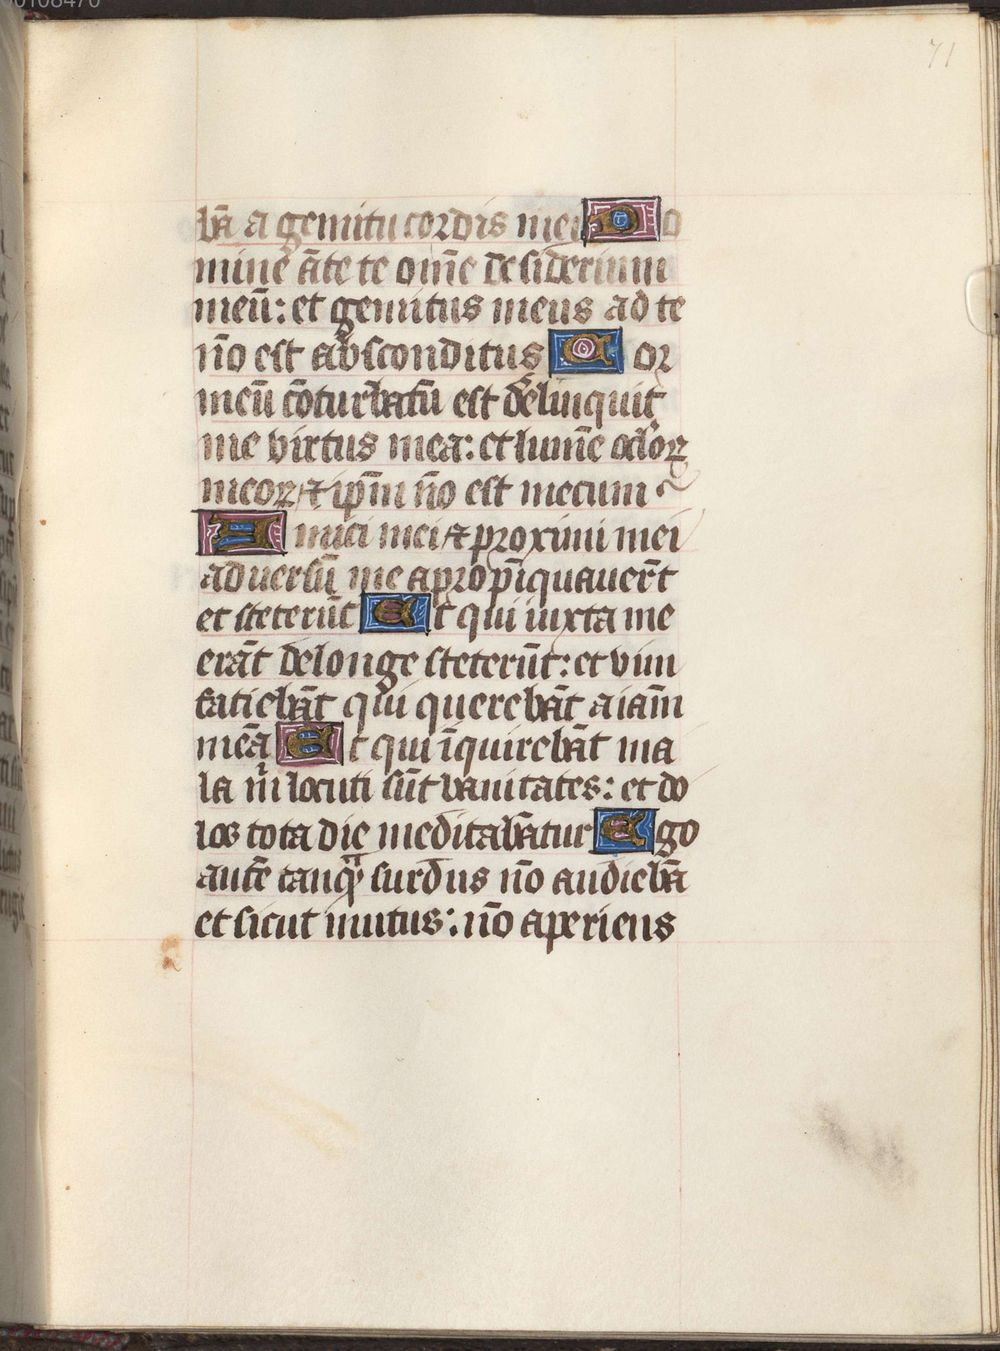 71
bā a gemitu cordis mei Do
mine āte te om̄e desiderium
meū: et gemitus meus ad te
n̄o est absconditus Cor
meū cōturbatū est dereliquit
me virtus mea: et lumē oclor̄ꝝ
meoꝝ ⁊ ip̄m n̄o est mecum
Amici mei ⁊ proximi mei
aduersū me apropīquauer̄t
et steterūt Et qui iuxta me
erāt delonge steterūt: et vim
fatiebāt qui querebāt aiām
meā Et qui īquirebāt ma
la m̄ locuti sūt vanitates: et do
los tota die meditabātur Ego
autē tanqᷓ surdus n̄o audiebā
et sicut mutus: n̄o aperiens